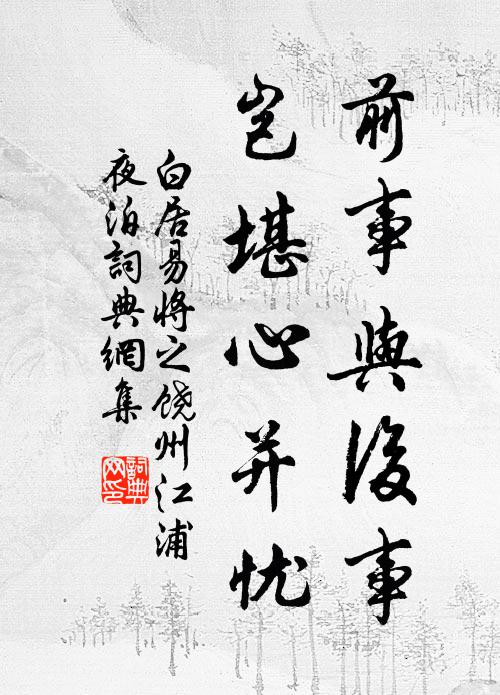 前事與後事
豈堪心并忧
白居易將之饶州江浦
夜泊詞典網集
詞典网印